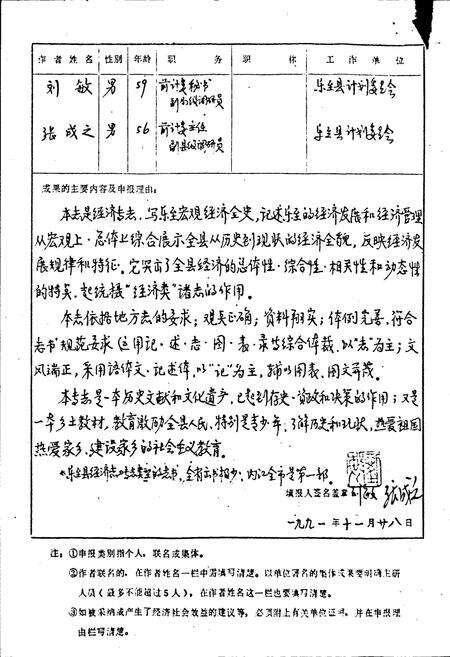 作者姓名 性别 年龄 职务 职称 工作单位
刘敏 男 59 前计委秘书 乐至县计划委员会
副局级调研员
张成之 男 56 前计委主任 乐至县计划委员会
副县级调研员
成果的主要内容及申报理由:
本志是经济专志,写乐至宏观经济全史,记述乐至的经济发展和经济管理
从宏观上、总体上综合展示全县从历史到现状的经济全貌,反映经济发
展规律和特征。它突出了全县经济的总体性、综合性、相关性和动态性
的特点,起统揽“经济类”诸志的作用。
本志依据地方志的要求;观点正确;资料翔实;体例完善,符合
志书规范要求(运用记、述、志、图、表、录等综合体裁,以“志”为主;文
风端正,采用语体文、记述体,以“记”为主,辅以图表,图文并茂。
本专志是一本历史文献和文化遗产,已起到存史、资政和决策的作用;又是
一本乡土教材,教育激励全县人民,特别是青少年,了解历史和现状,热爱祖国
热爱家乡,建设家乡的社会主义教育。
《乐至县经济志》 全省 内江全市是第一部。
填报人签名盖章 刘敏 张成之
一九九一年十一月廿八日
注:①申报类别指个人,联名或集体。
②作者联名的,在作者姓名一栏中需填写清楚。以单位署名的集体成果要列主研
人员(最多不能超过5人),在作者姓名这一栏也要填写清楚。
③如被采纳或产生了经济社会效益的建议等,必须附上有关单位证明,并在申报理
由栏写清楚。